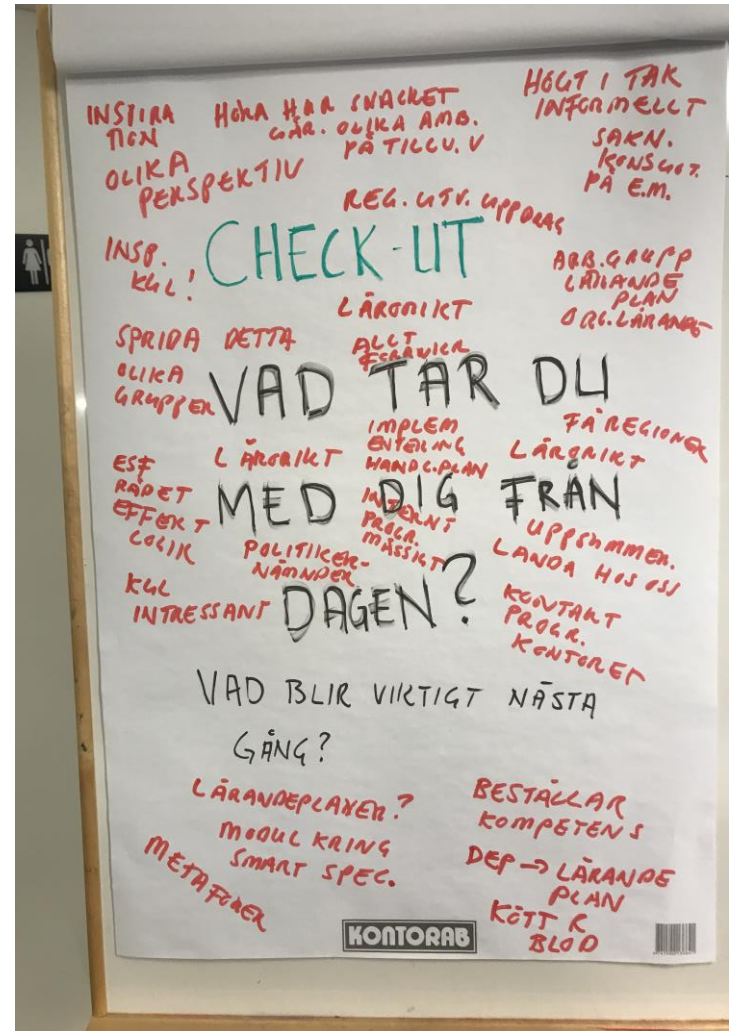 INSPIRA
TION
OLIKA
PERSPEKTIV
HÖRA HUR SNACKET
GÅR. OLIKA AMB.
PÅ TILLV. V
HÖGT I TAK
INFORMELLT
SAKN.
PÅ E.M.
REG. UTV. UPPDRAG
CHECK-UT
INSP.
KUL!
ARB.GRUPP
LÄRANDE
PLAN
ORG. LÄRANDE
LÄRORIKT
SPRIDA DETTA
OLIKA
GRUPPER
ALLT
VAD TAR DU
IMPLEM
ENTERING
HANDL.PLAN
FÅ REGIONER
LÄRORIKT
LÄRORIKT
ESF
RÅDET
EFFEKT
LOGIK
MED DIG FRÅN
INTERNT
PROGR.
MÄSSIGT
UPPSUMMER.
LANDA HOS OSS
POLITIKER-
NÄMNDER
KUL
INTRESSANT
DAGEN?
KONTAKT
PROGR.
KONTORET
VAD BLIR VIKTIGT NÄSTA
GÅNG?
LÄRANDEPLANER?
MODUL KRING
SMART SPEC.
METAFORER
BESTÄLLAR
KOMPETENS
DEP → LÄRANDE
PLAN
KÖTT &
BLOD
KONTORAB